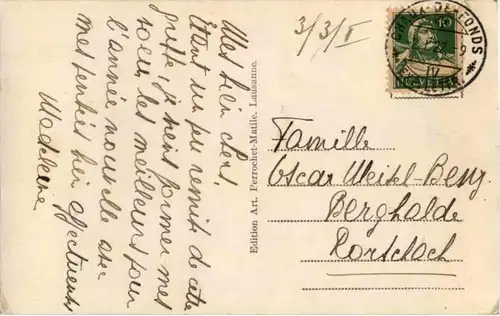 Mes bien chers,
Etant un peu remise de cette
grippe, je viens former mes
voeux les meilleurs pour
l'année nouvelle avec
mes pensées bien affectueuses
Madeleine
3/3/I
Edition Art. Perrochet-Matile, Lausanne.
CHAUX-DE-FONDS
10
HELVETIA
Famille
Oscar Weikl-Benz
Berghalde
Rorschach